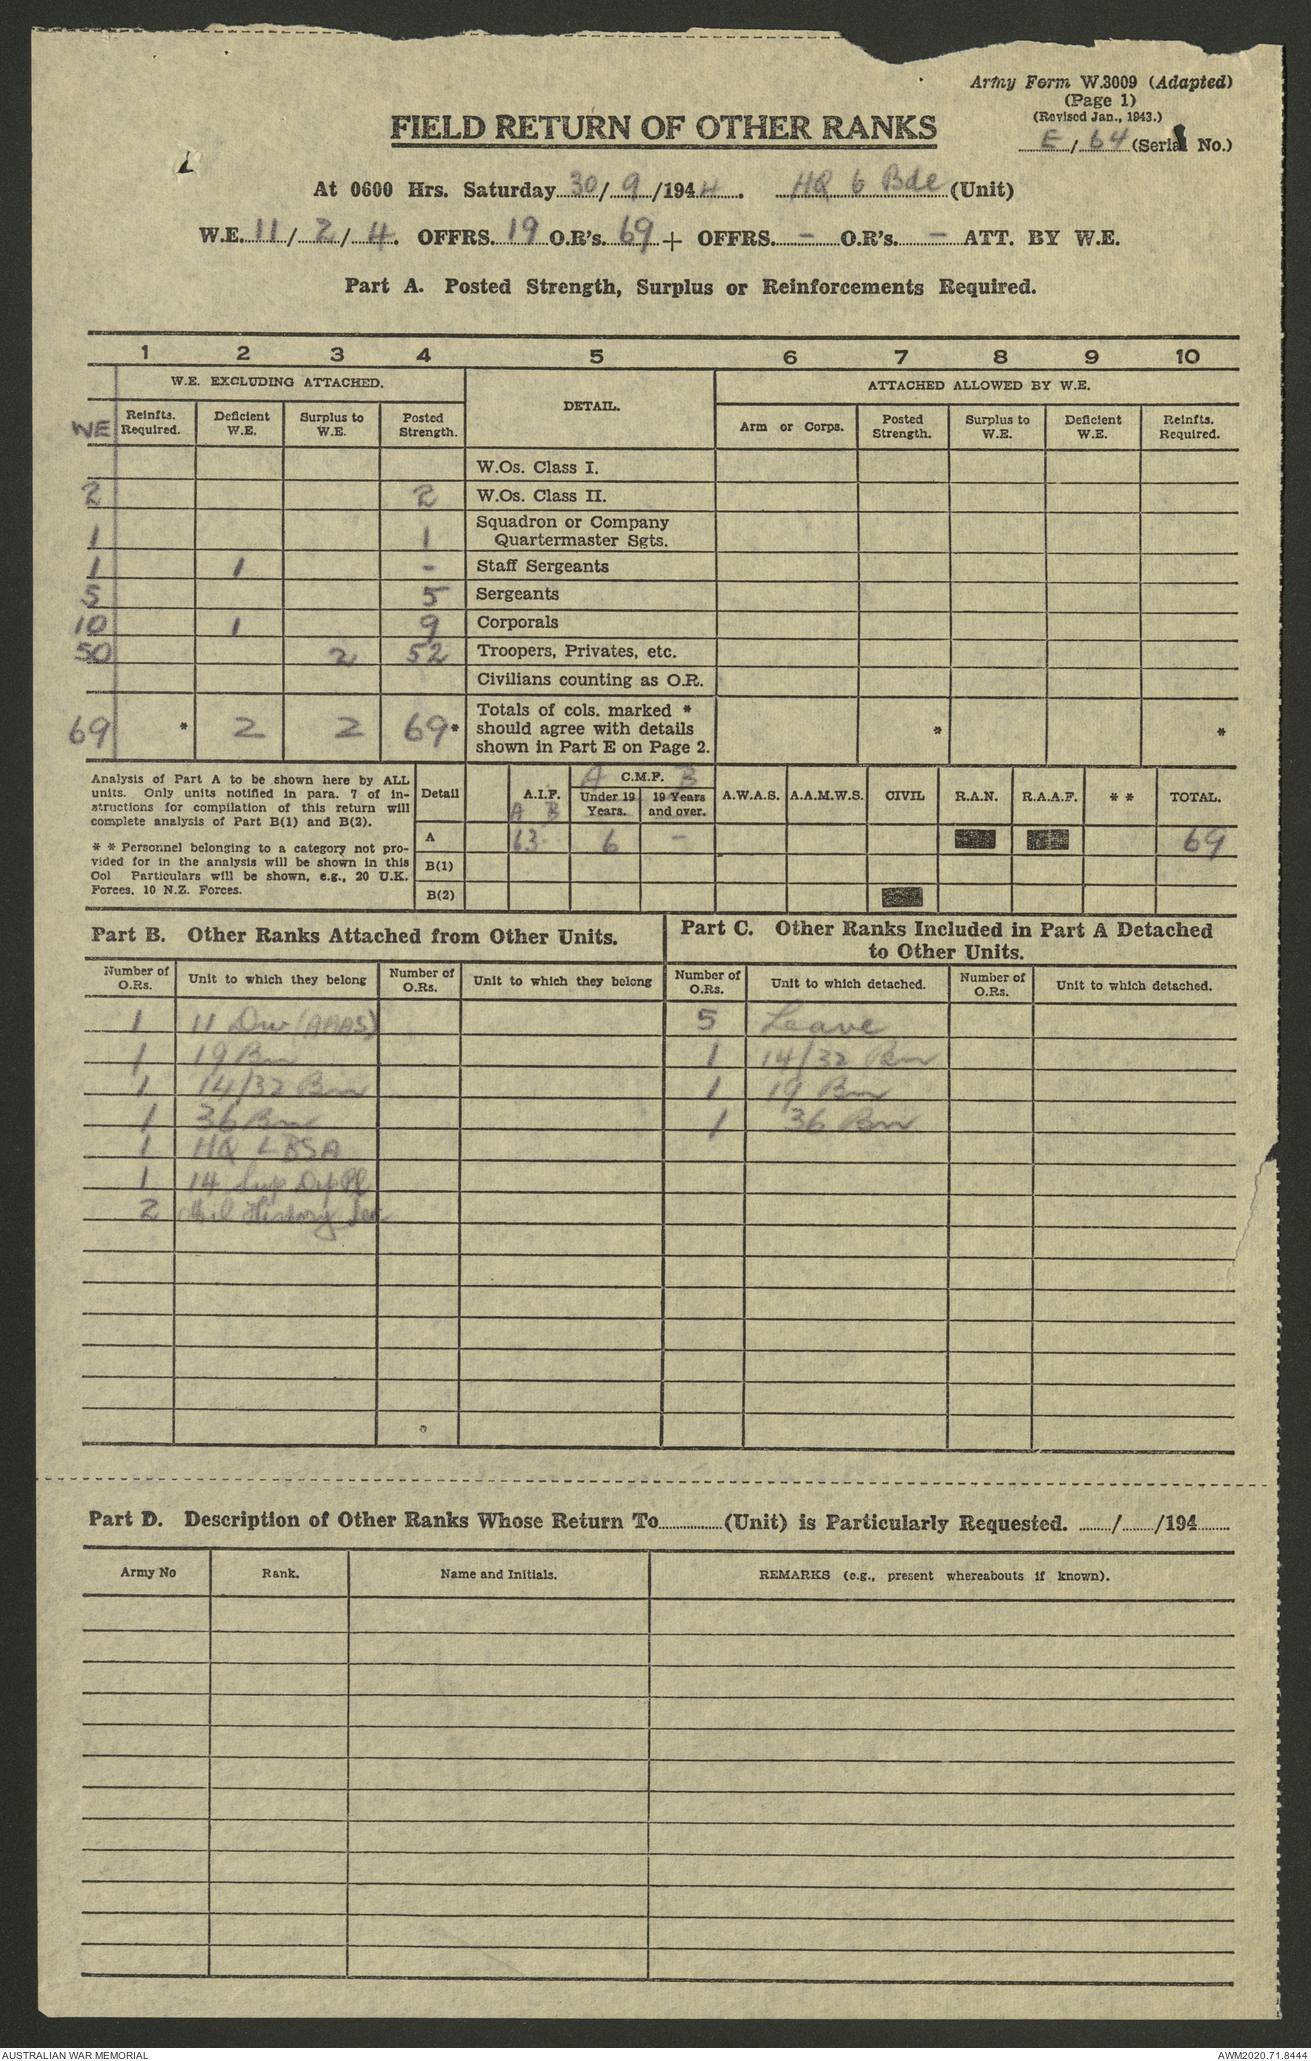 Army Form W.3009 (Adapted)
(Page 1)
(Revised Jan., 1943.)
E/64 (Serial No.)
FIELD RETURN OF OTHER RANKS
At 0600 Hrs. Saturday 30/9/1944. HQ 6 Bde (Unit)
W.E. 11/2/4. OFFRS. 19 O.R's. 69 + OFFRS. - O.R's. - ATT. BY W.E.
Part A. Posted Strength, Surplus or Reinforcements Required.
1 2 3 4 5 6 7 8 9 10
W.E. EXCLUDING ATTACHED. DETAIL. ATTACHED ALLOWED BY W.E.
WE Reinfts. Required. Deficient W.E. Surplus to W.E. Posted Strength. Arm or Corps. Posted Strength. Surplus to W.E. Deficient W.E. Reinfts. Required.
W.Os. Class I.
2 2 W.Os. Class II.
1 1 Squadron or Company Quartermaster Sgts.
1 1 - Staff Sergeants
5 5 Sergeants
10 1 9 Corporals
50 2 52 Troopers, Privates, etc.
Civilians counting as O.R.
69 * 2 2 69* Totals of cols. marked * should agree with details shown in Part E on Page 2. * *
Analysis of Part A to be shown here by ALL
units. Only units notified in para. 7 of in-
structions for compilation of this return will
complete analysis of Part B(1) and B(2).
* * Personnel belonging to a category not pro-
vided for in the analysis will be shown in this
Col Particulars will be shown, e.g., 20 U.K.
Forces, 10 N.Z. Forces.
Detail A.I.F. A B C.M.F. A B Under 19 Years. 19 Years and over. A.W.A.S. A.A.M.W.S. CIVIL R.A.N. R.A.A.F. * * TOTAL.
A 63 6 - 69
B(1)
B(2)
Part B. Other Ranks Attached from Other Units.
Part C. Other Ranks Included in Part A Detached
to Other Units.
Number of O.Rs. Unit to which they belong Number of O.Rs. Unit to which they belong Number of O.Rs. Unit to which detached. Number of O.Rs. Unit to which detached.
1 11 Div 5 Leave
1 19 Bn 1 14/32 Bn
1 14/32 Bn 1 19 Bn
1 36 Bn 1 36 Bn
1 HQ LBSA
1 14 Sup Dep Pl
2 Mil History Sec
Part D. Description of Other Ranks Whose Return To (Unit) is Particularly Requested. / /194
Army No Rank. Name and Initials. REMARKS (e.g., present whereabouts if known).
AUSTRALIAN WAR MEMORIAL AWM2020.71.8444